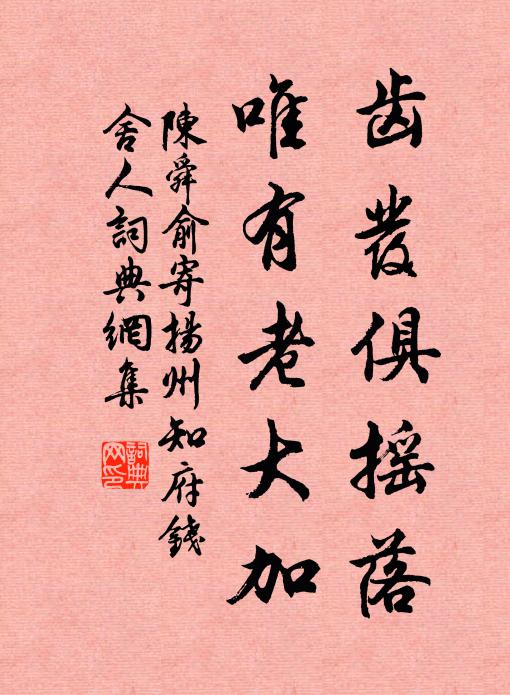 齿發俱摇落
唯有老大加
陳舜俞寄揚州知府錢
舍人詞典網集
詞典网印